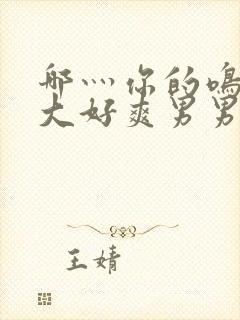 哪灬你的鸣
大好爽男男
王婧